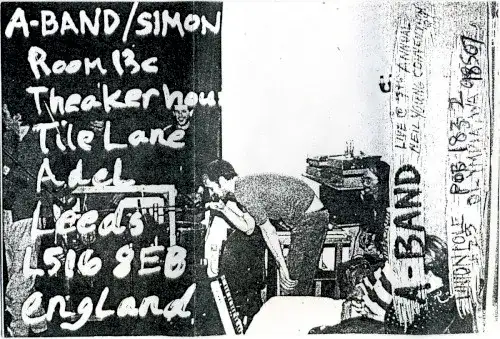 A-BAND/SIMON
Room 13c
Theaker hou
Tile Lane
Adel
Leeds
LS16 8EB
england
A-BAND
LIVE @ 9th ANNUAL
NEIL YOUNG CONVENTION
POB 1832
OLYMPIA WA 98507